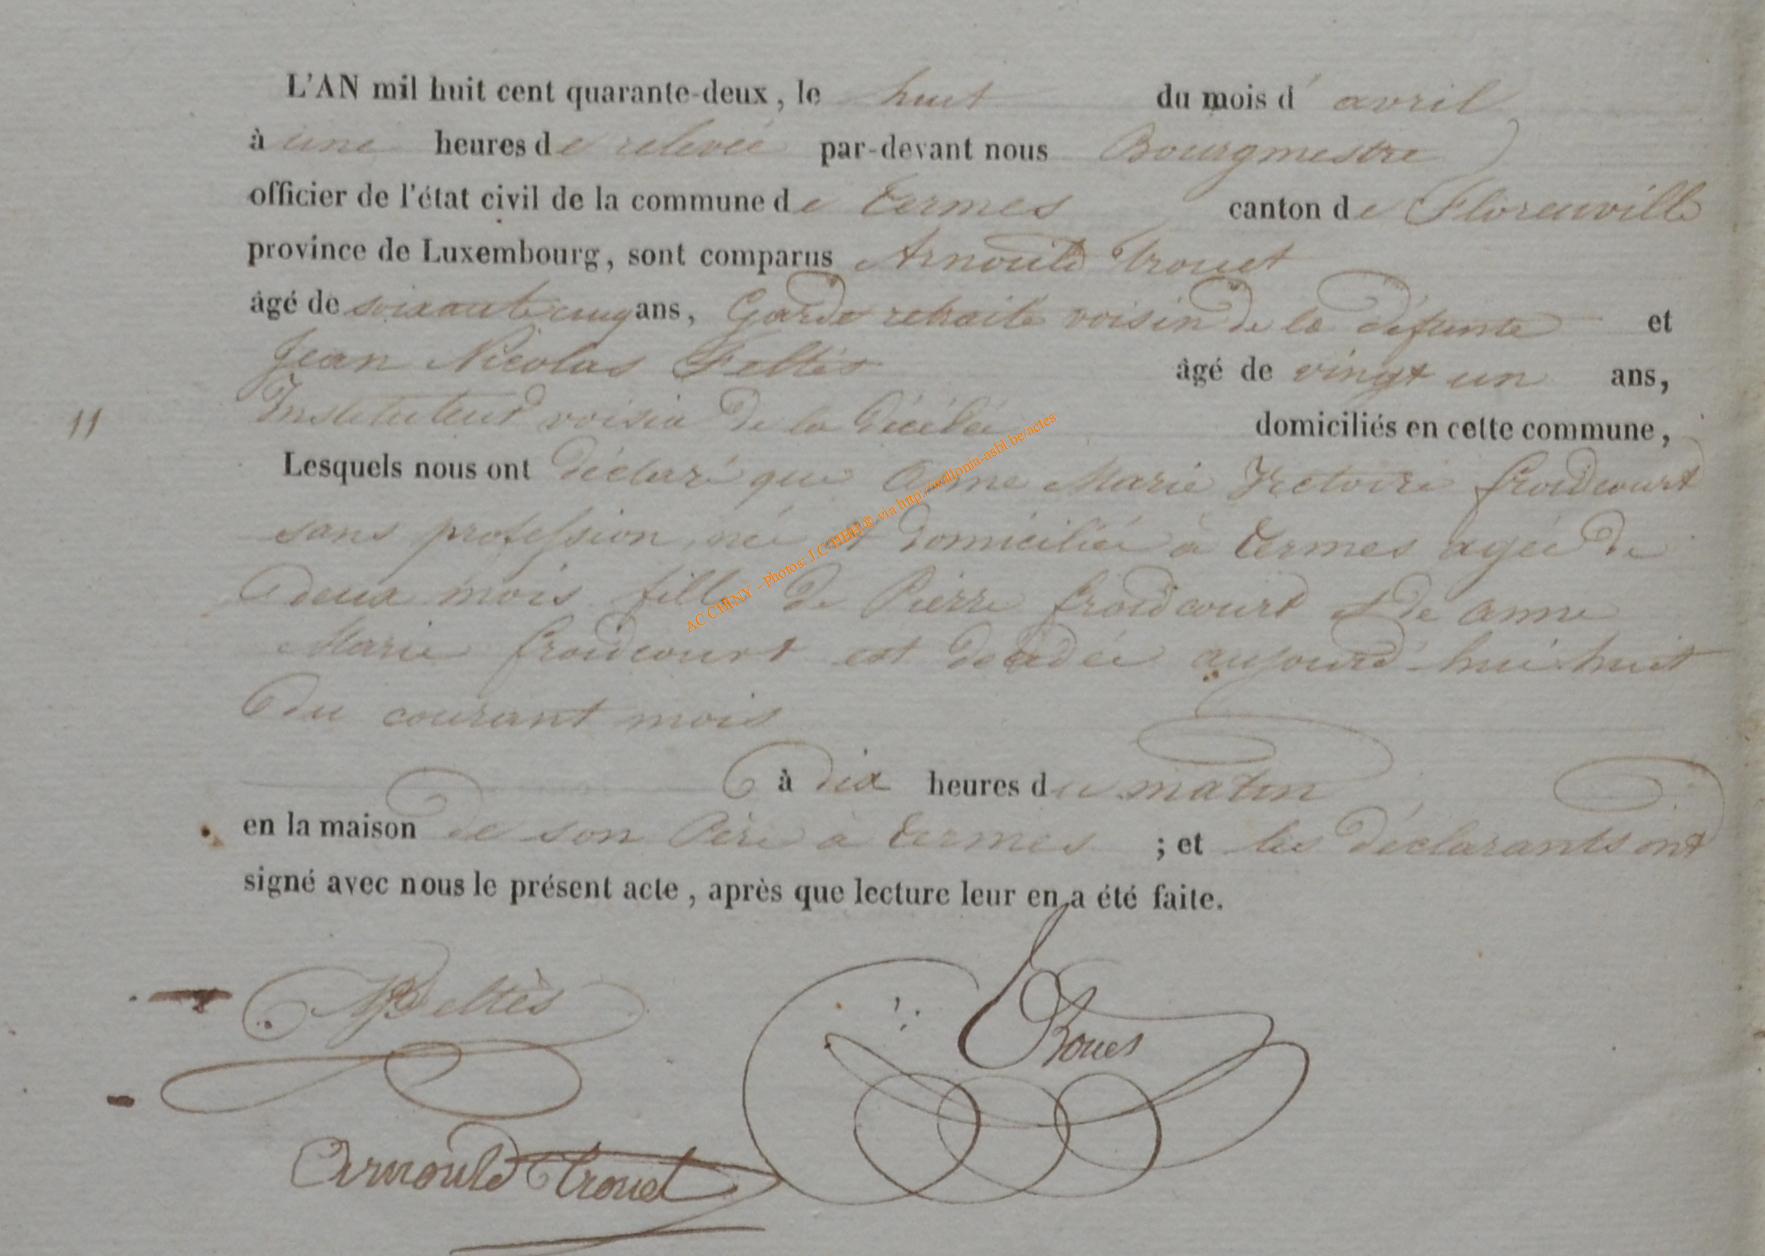 L'AN mil huit cent quarante-deux, le huit du mois d'avril
à une heures de relevée par-devant nous Bourgmestre
officier de l'état civil de la commune de Termes canton de Florenville
province de Luxembourg, sont comparus Arnould Trouet
âgé de soixante cinq ans, Garde retraité voisin de la défunte et
Jean Nicolas Feltès âgé de vingt un ans,
11
Instituteur voisin de la décédée domiciliés en cette commune,
Lesquels nous ont déclaré que Anne Marie Victoire froidcourt
sans profession, née et domiciliée à Termes agée de
deux mois fille de Pierre froidcourt et de anne
Marie froidcourt est décédée aujourd'hui huit
du courant mois
à dix heures du matin
en la maison de son Père à Termes ; et les déclarants ont
signé avec nous le présent acte, après que lecture leur en a été faite.
Feltès
Arnould Trouet
AC CHINY - Photos: via http://wallonia-asbl.be/actes